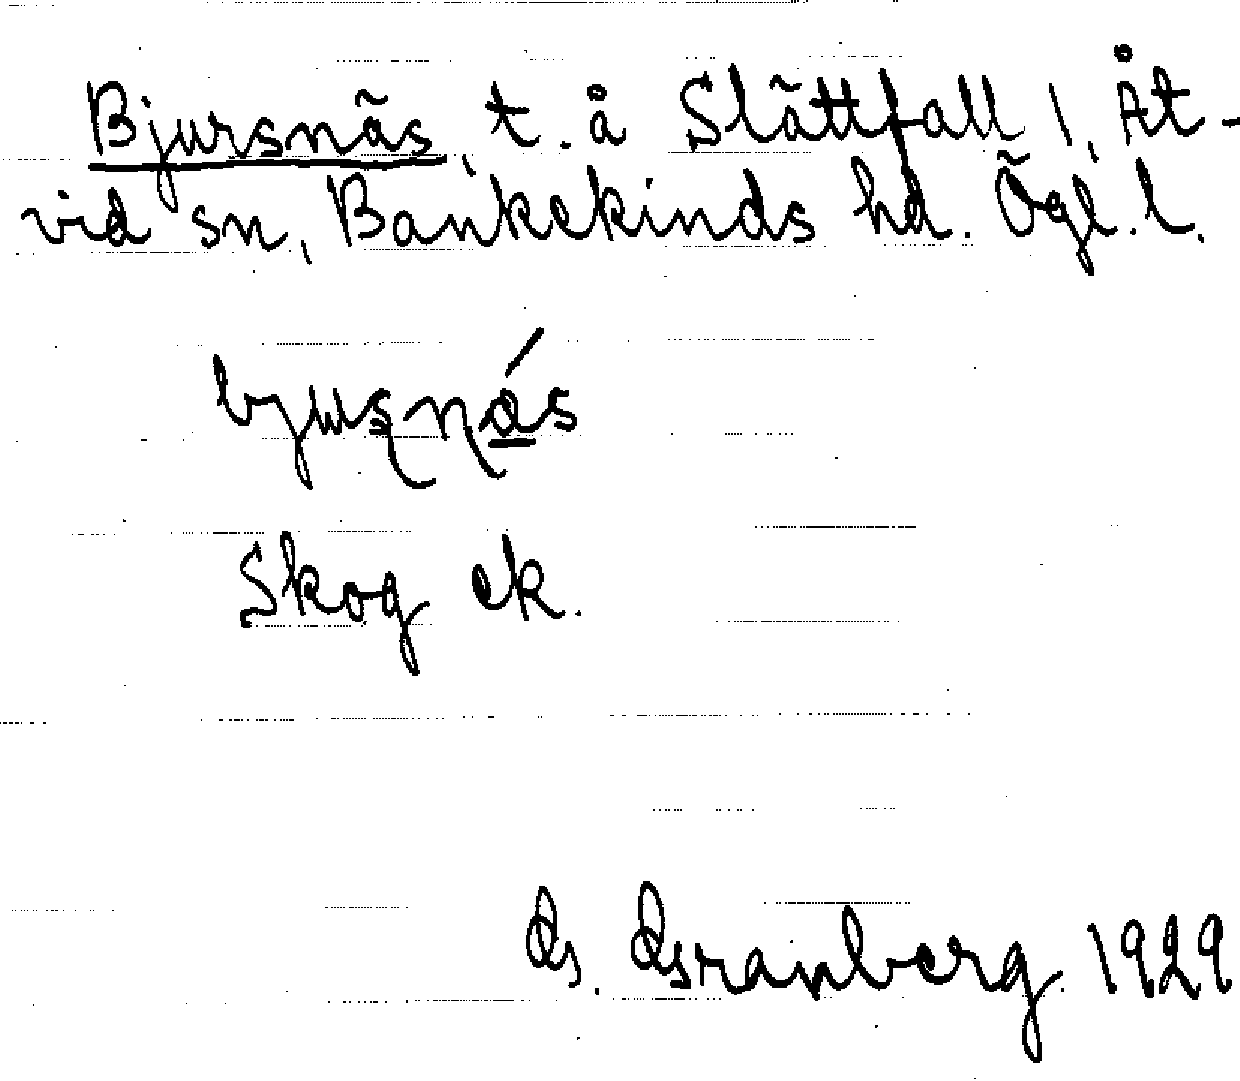 Bjursnäs, t. å Slättfall 1, Åt-
vid sn, Bankekinds hd. Ögl. l.
Skog ek.
G. Granberg 1929